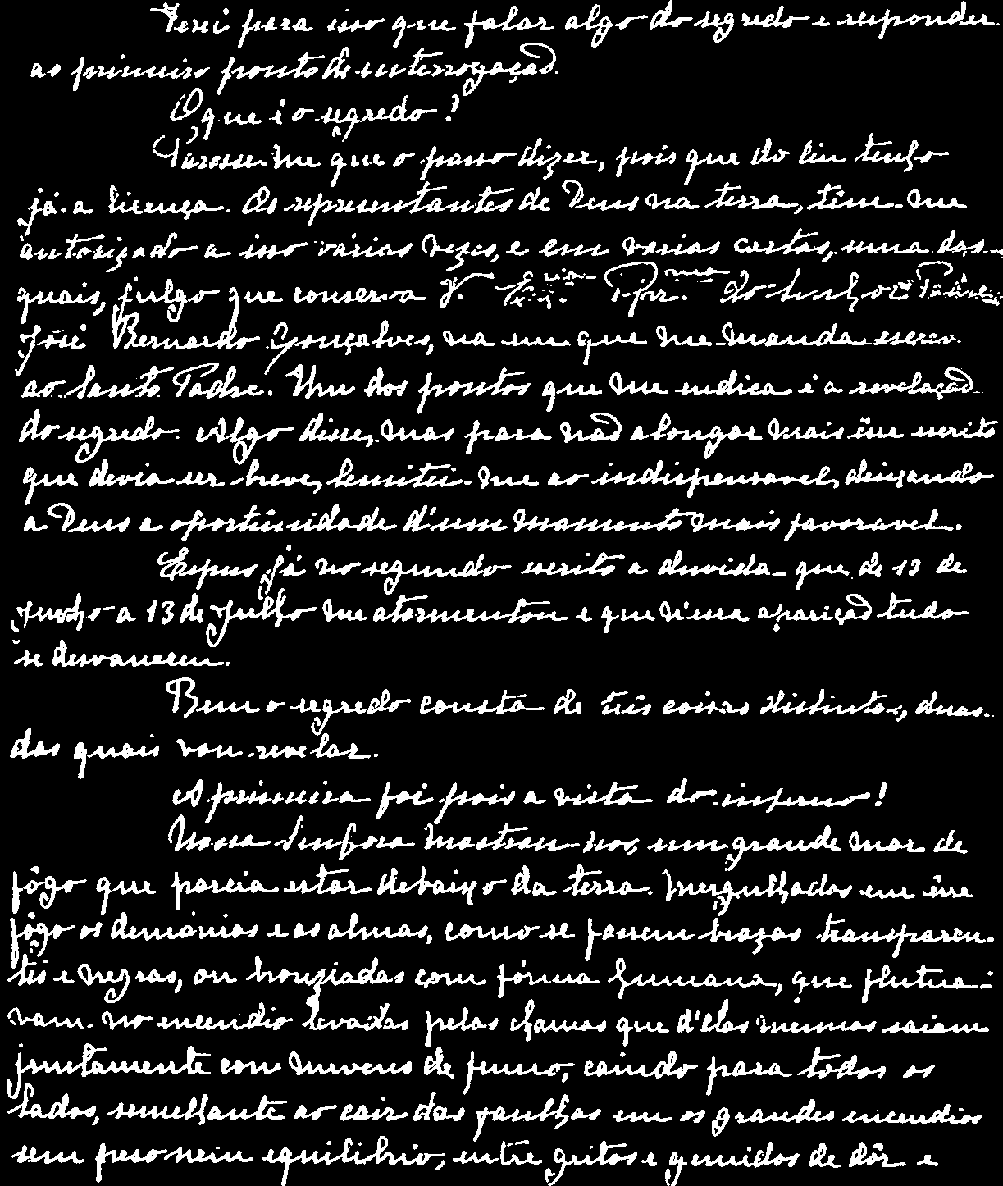 Terei para isso que falar algo do segredo e responder
ao primeiro ponto de interrogação.
O que é o segredo?
Parece-me que o posso dizer, pois que do Céu tenho
já a licença. Os representantes de Deus na terra, têm-me
autorizado a isso várias vezes, e em varias cartas, uma das
quais, julgo que conserva V. Ex.cia Rev.ma do Senhor Padre
José Bernardo Gonçalves, na em que me manda escrever
ao Santo Padre. Um dos pontos que me indica é a revelação
do segredo. Algo disse, mas para não alongar mais êsse escrito
que devia ser breve, limitei-me ao indispensavel, deixando
a Deus a oportunidade d'um momento mais favoravel.
Expus já no segundo escrito a duvida que de 13 de
Junho a 13 de Julho me atormentou e que n'essa aparição tudo
se desvaneceu.
Bem o segredo consta de três coisas distintas, duas
das quais vou revelar.
A primeira foi pois a vista do inferno!
Nossa Senhora mostrou-nos um grande mar de
fôgo que parcia estar debaixo da terra. Mergulhados em êsse
fôgo os demónios e as almas, como se fossem brazas transparen-
tes e negras, ou bronziadas com fórma humana, que flutua-
vam no incendio levadas pelas chamas que d'elas mesmas saiam
juntamente com nuvens de fumo, caindo para todos os
lados, semelhante ao cair das faulhas em os grandes incendios
sem peso nem equilibrio, entre gritos e gemidos de dôr e